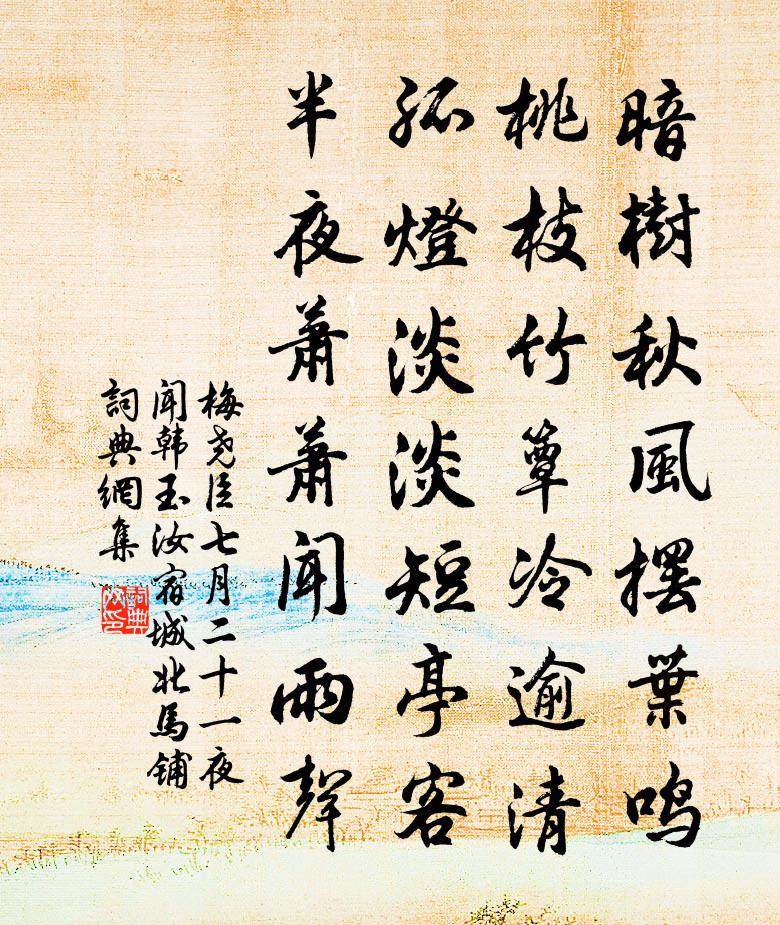 暗樹秋風擺葉鳴
桃枝竹簟冷逾清
孤燈淡淡短亭客
半夜蕭蕭聞雨聲
梅尧臣七月二十一夜
聞韩玉汝宿城北馬铺
詞典網集